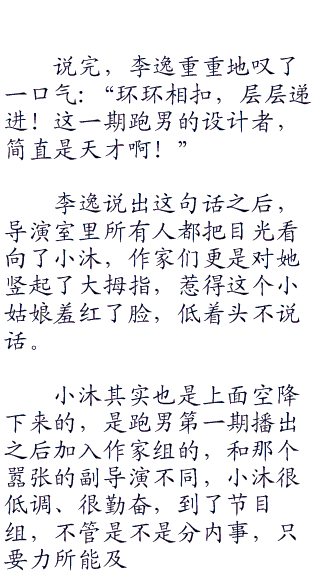 说完，李逸重重地叹了
一口气：“环环相扣，层层递
进！这一期跑男的设计者，
简直是天才啊！”
李逸说出这句话之后，
导演室里所有人都把目光看
向了小沐，作家们更是对她
竖起了大拇指，惹得这个小
姑娘羞红了脸，低着头不说
话。
小沐其实也是上面空降
下来的，是跑男第一期播出
之后加入作家组的，和那个
嚣张的副导演不同，小沐很
低调、很勤奋，到了节目
组，不管是不是分内事，只
要力所能及